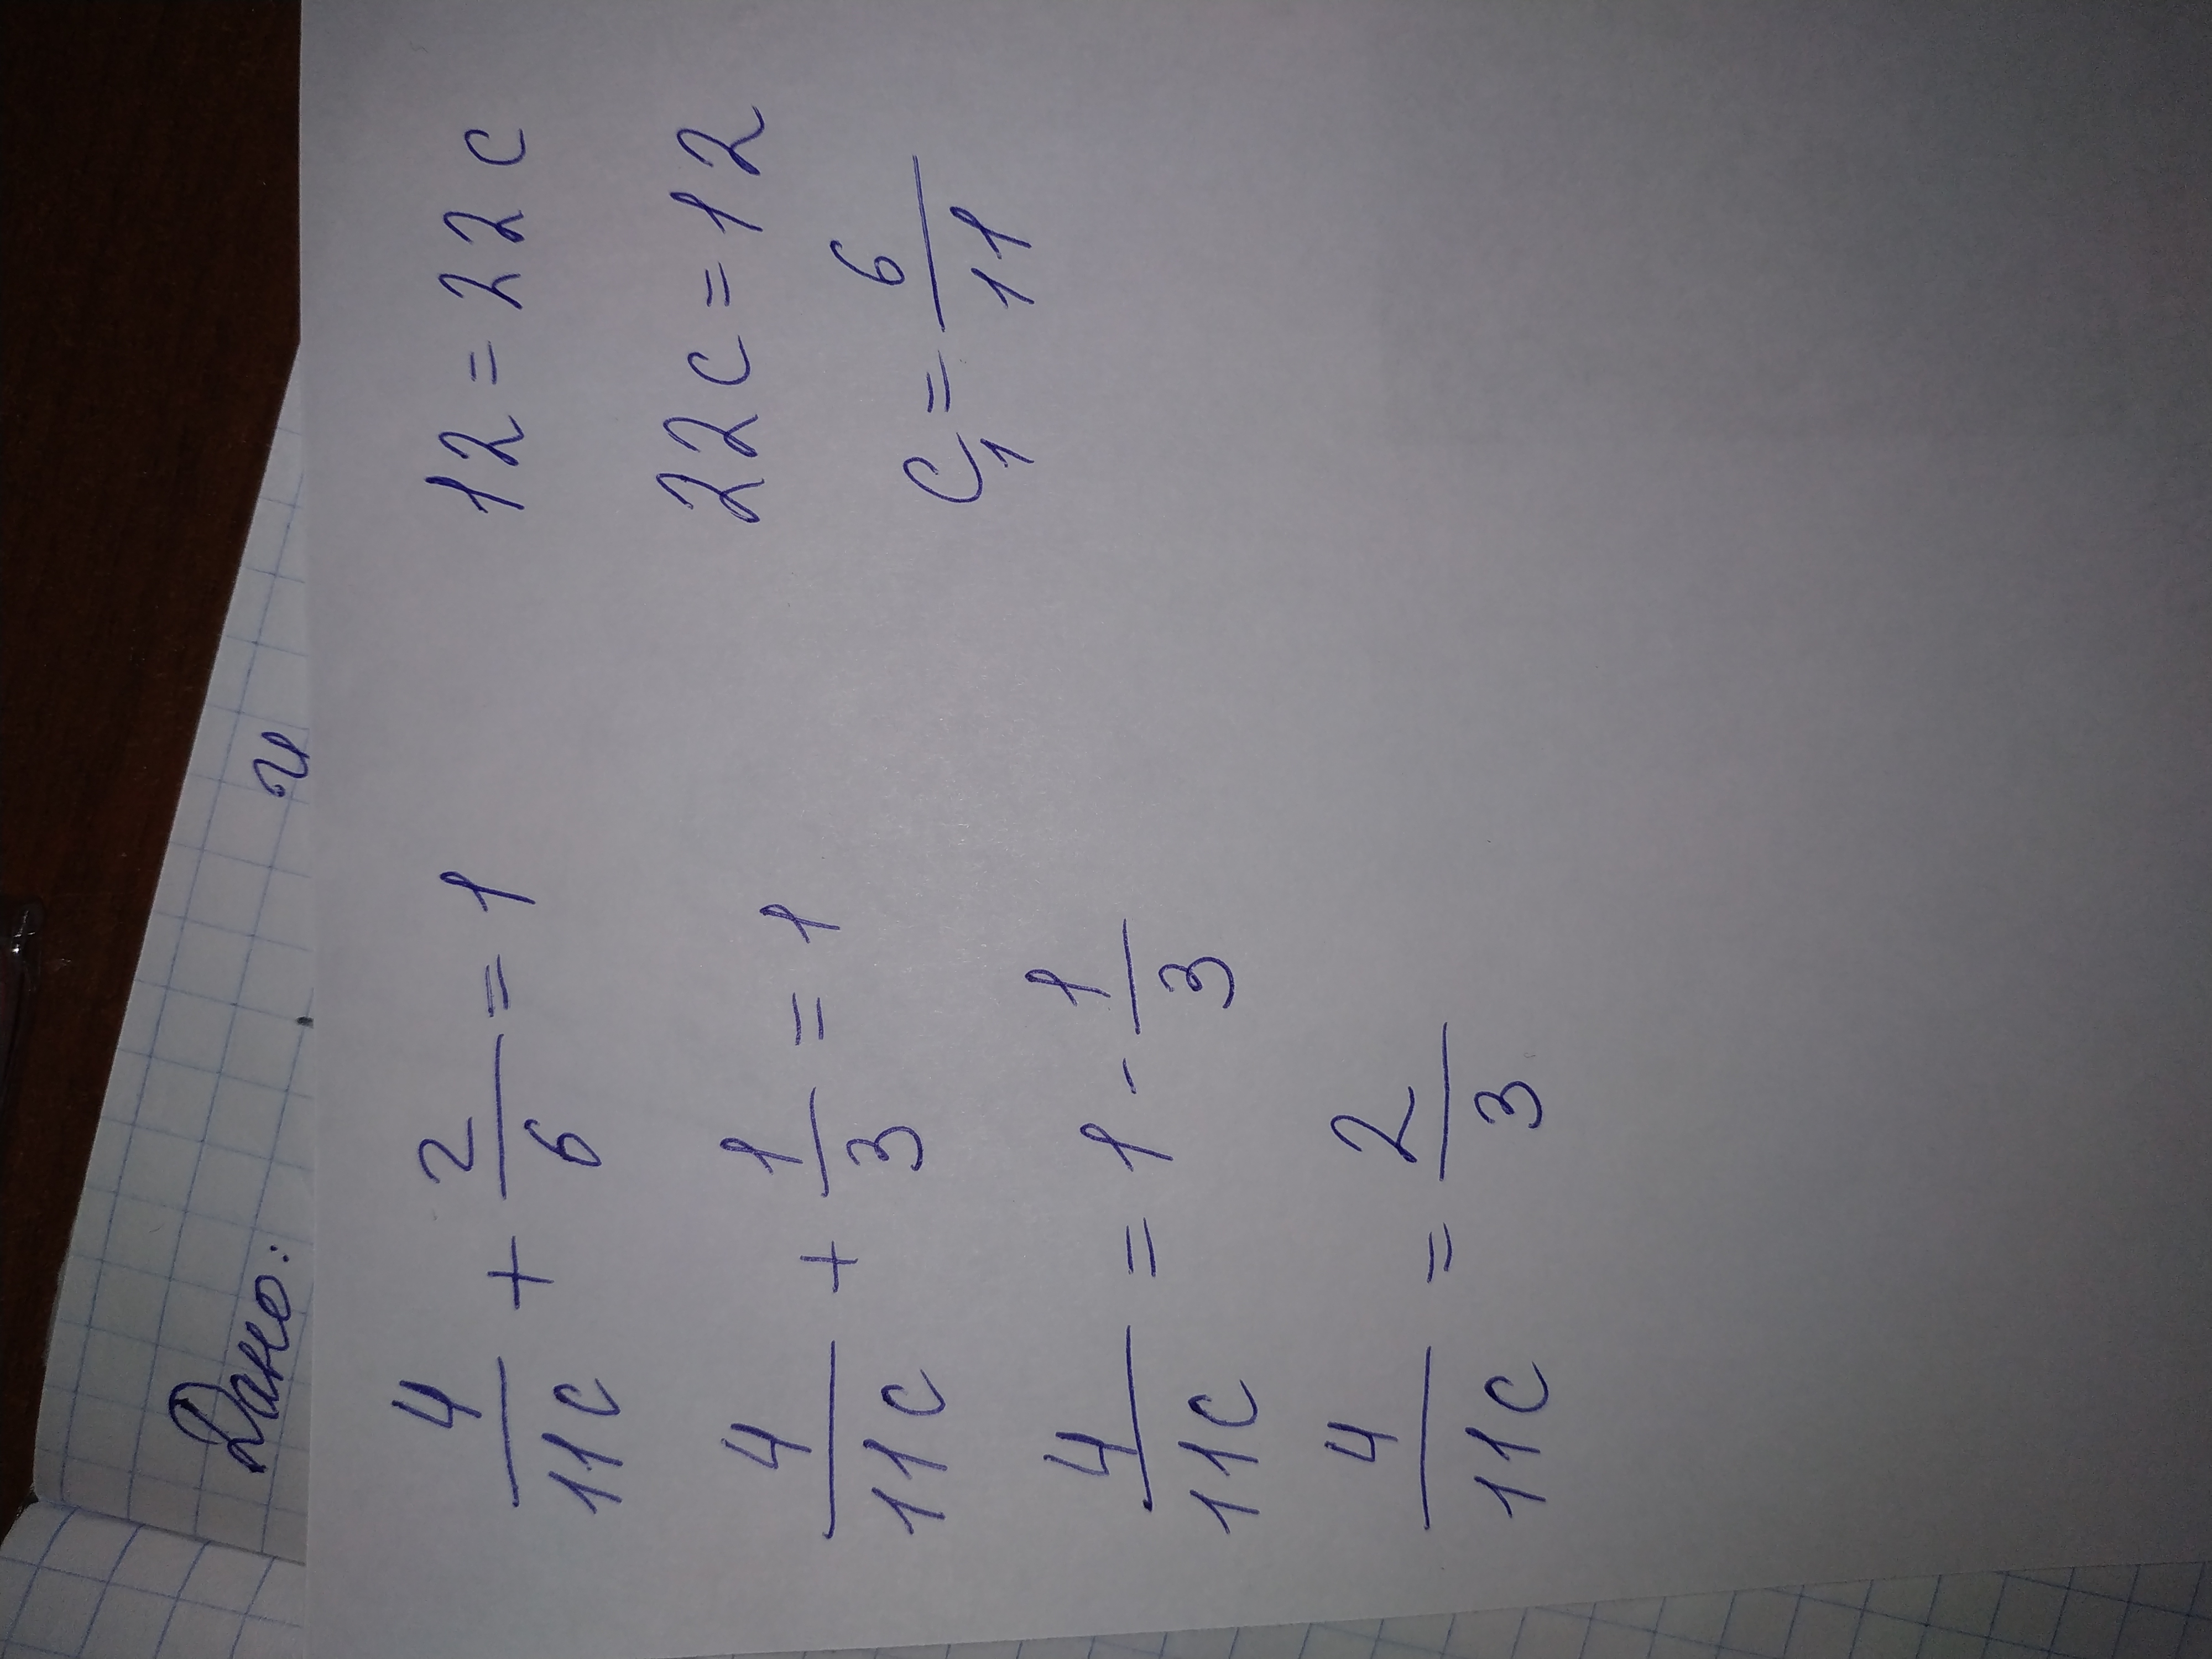 Дано:
4/11c + 2/6 = 1
4/11c + 1/3 = 1
4/11c = 1 - 1/3
4/11c = 2/3
12 = 22c
22c = 12
c₁ = 6/11